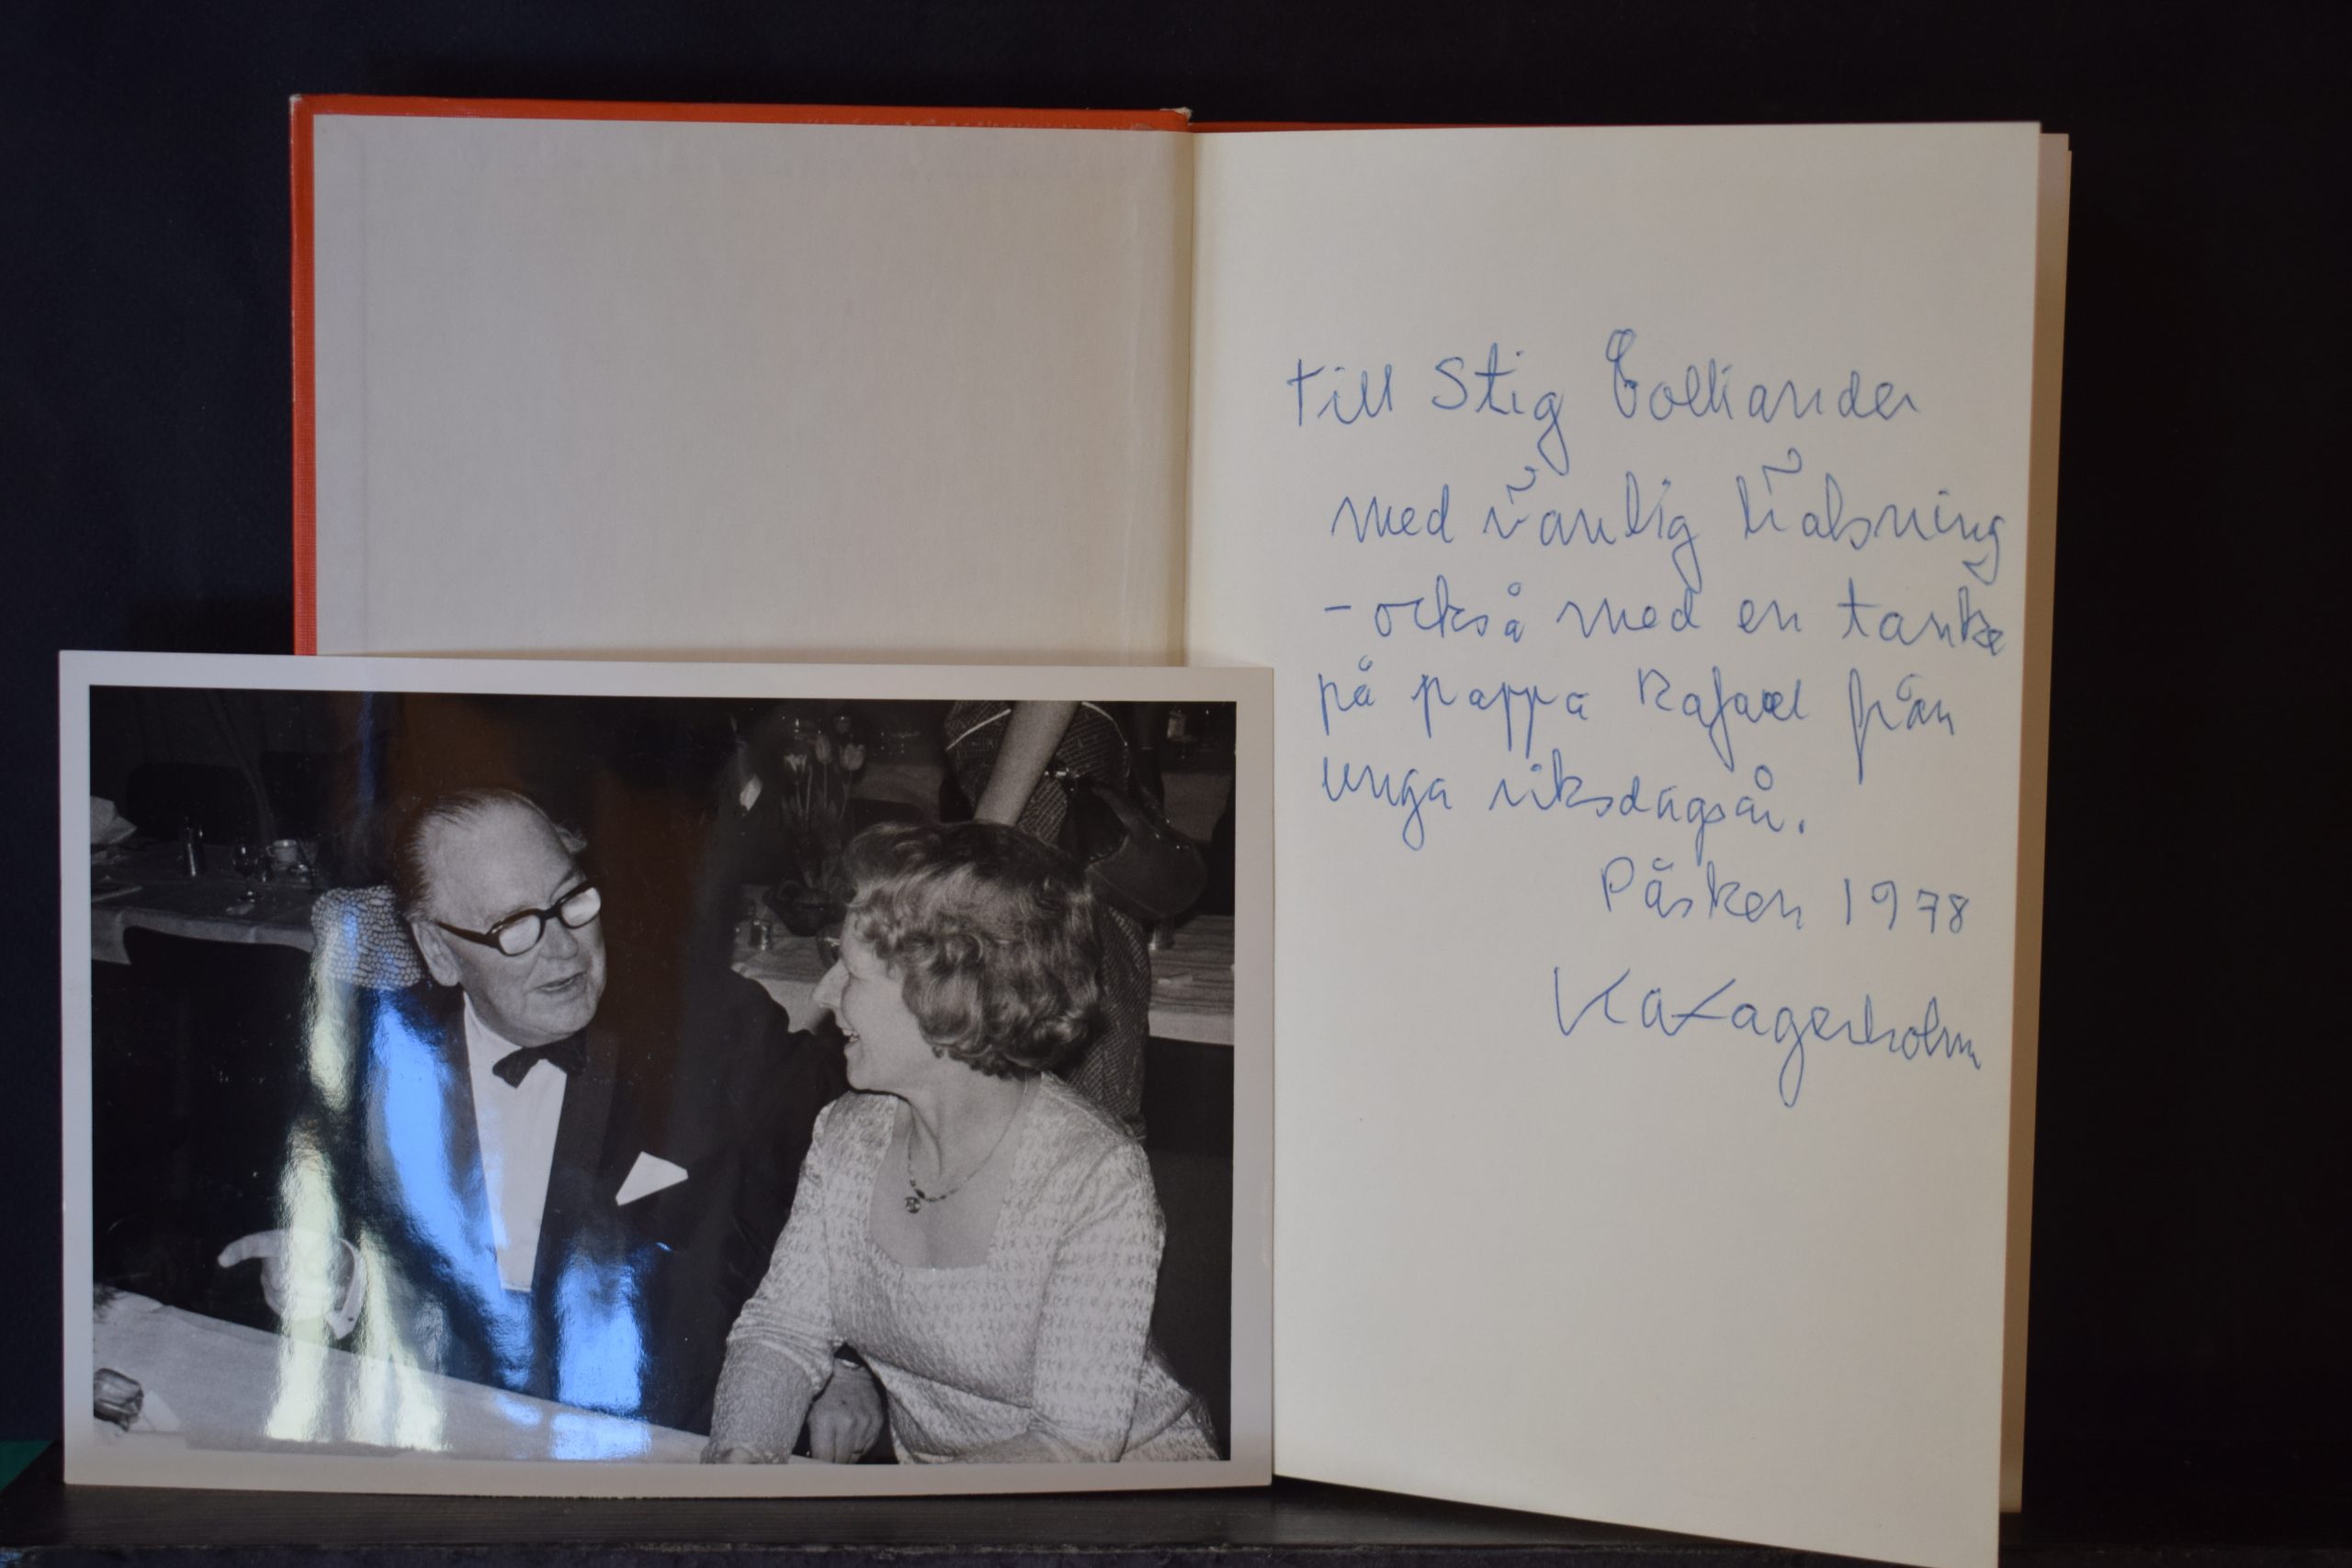 till Stig Colliander
med vänlig hälsning
- också med en tanke
på pappa Rafael från
unga riksdagsår.
Påsken 1978
KAFagerholm